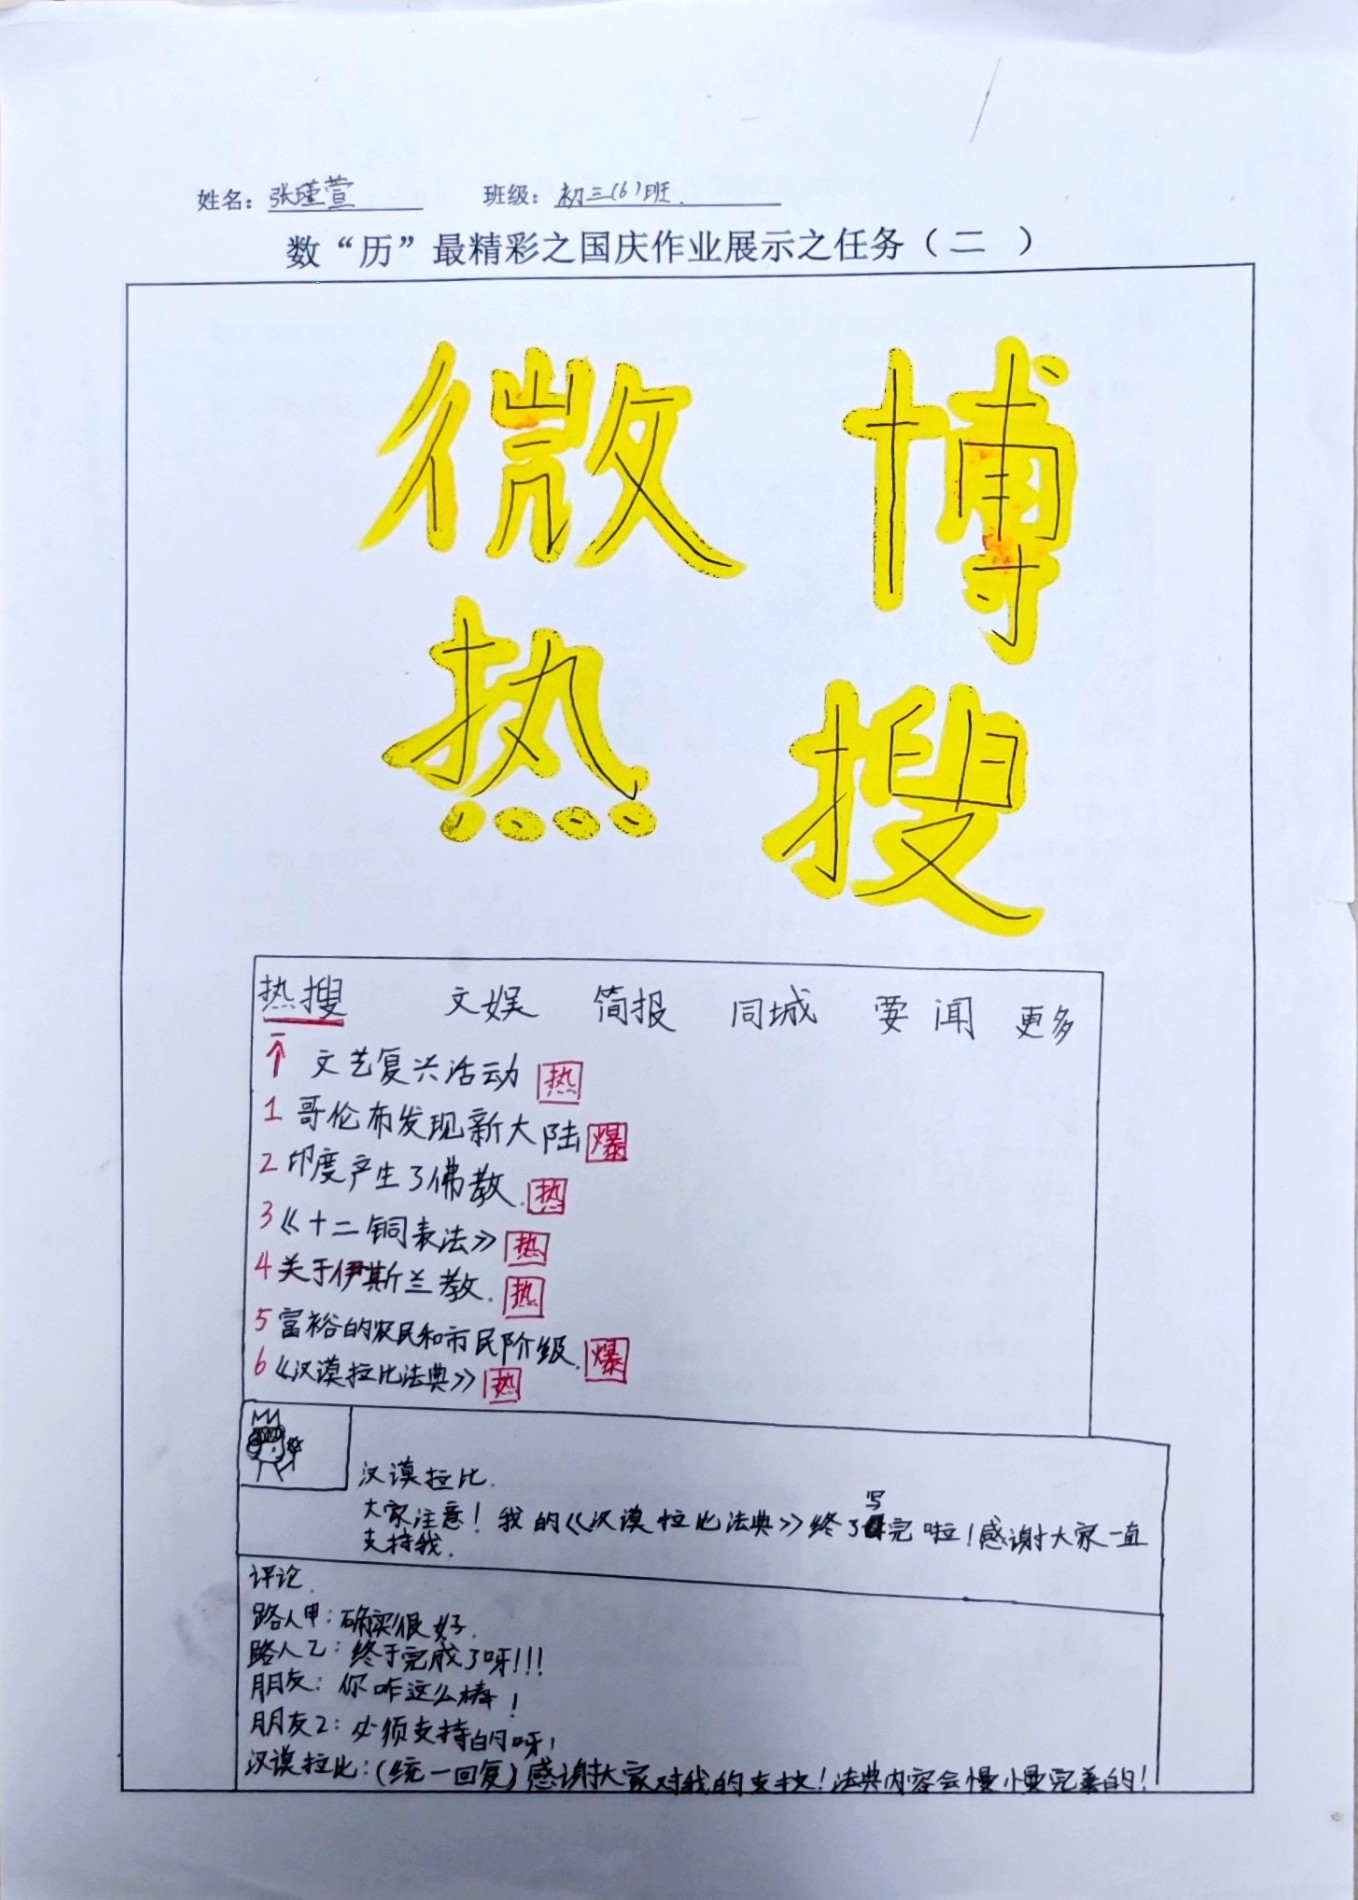 姓名：张瑾萱 班级：初三(6)班.
数“历”最精彩之国庆作业展示之任务（二 ）
微 博
热 搜
热搜 文娱 简报 同城 要闻 更多
文艺复兴活动 热
1 哥伦布发现新大陆 爆
2 印度产生了佛教. 热
3《十二铜表法》 热
4 关于伊斯兰教. 热
5 富裕的农民和市民阶级. 爆
6《汉谟拉比法典》 热
汉谟拉比.
大家注意！我的《汉谟拉比法典》终了写完啦！感谢大家一直
支持我.
评论.
路人甲：确实很好.
路人乙：终于完成了呀！！！
朋友：你咋这么棒！
朋友2：必须支持的呀！
汉谟拉比：(统一回复)感谢大家对我的支持！法典内容会慢慢完善的！